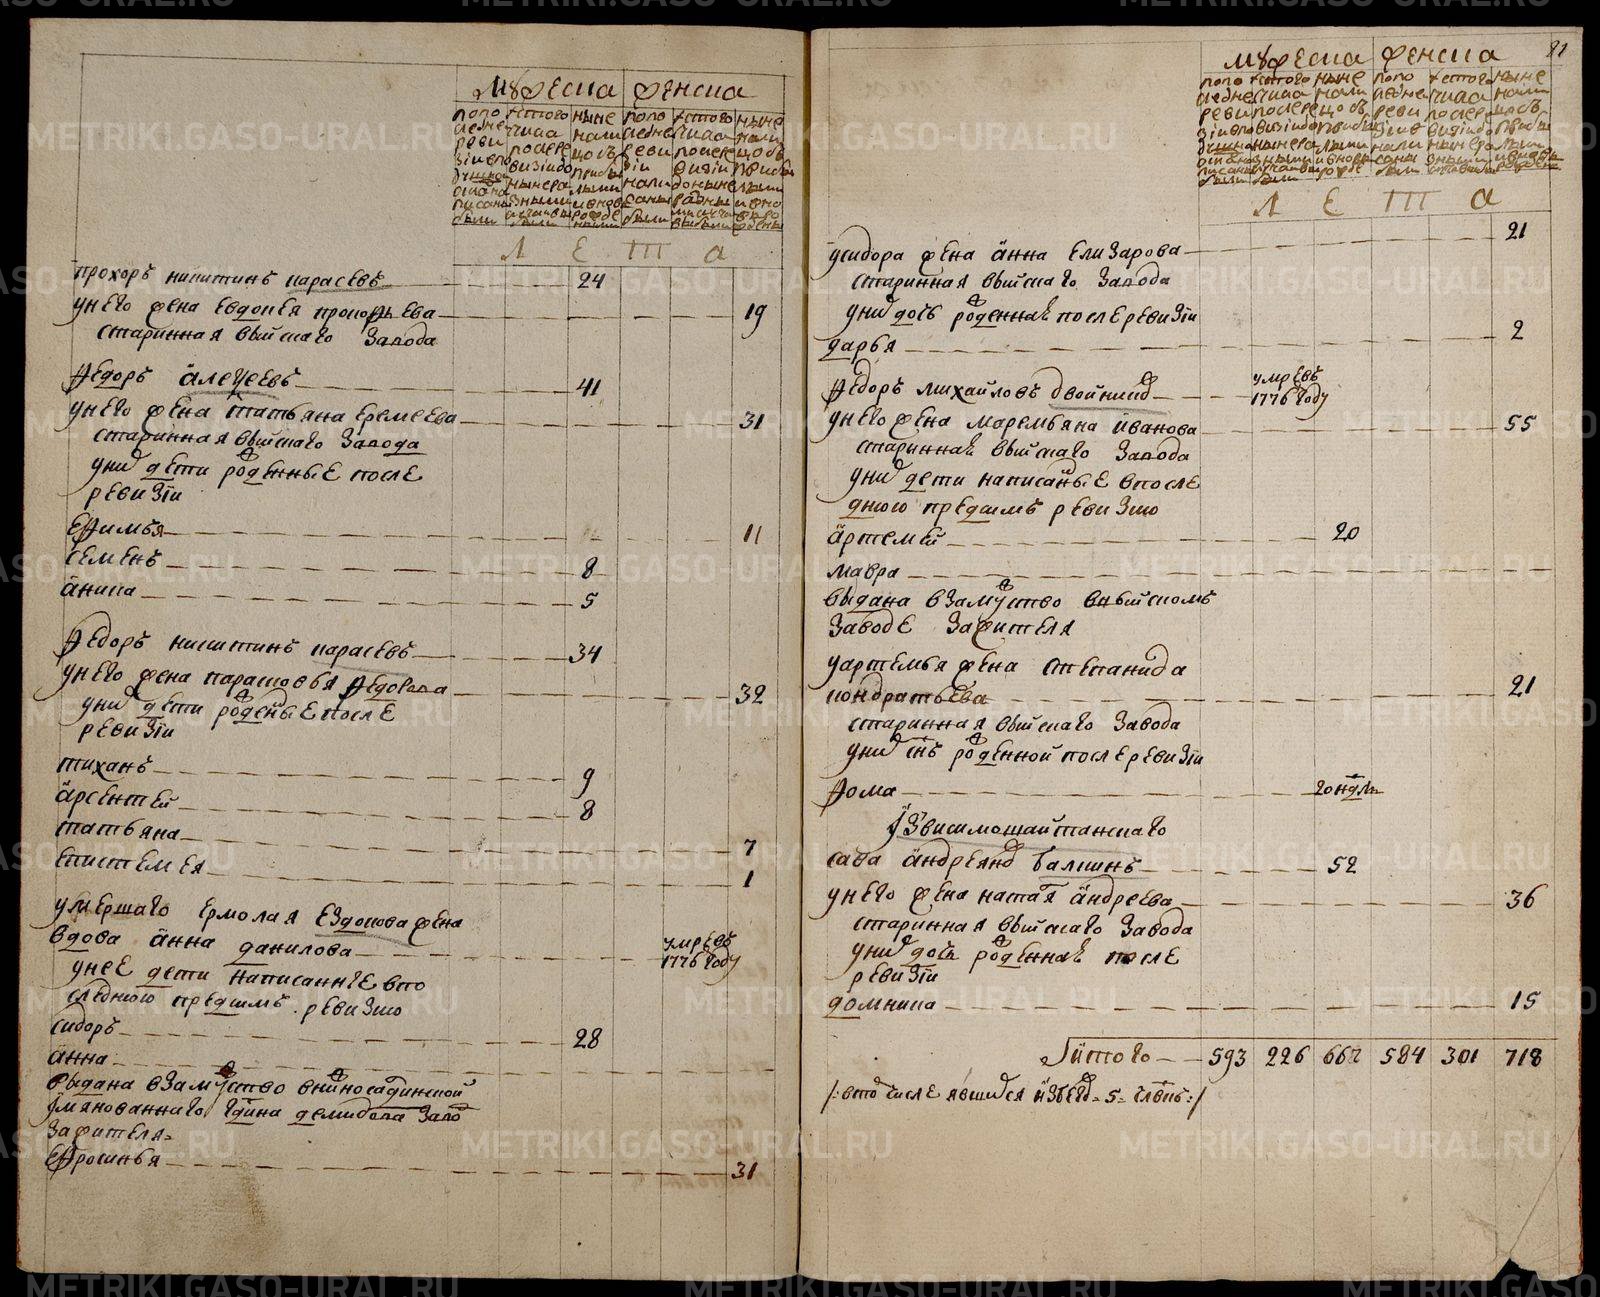 мужеска женска
попо
следне
реви
зии
ис того
числа
после
ныне
нали
цось
лета
прохоръ никитинъ карасевъ 24
унего жена евдокея прокофьева 19
старинная выйскаго завода
федоръ алеѯеевъ 41
унего жена татьяна еремеева 31
старинная выйскаго завода
уних дети рожденные после
ревизїи
ефимья 11
семенъ 8
аника 5
федоръ никитинъ карасевъ 34
унего жена парасковья федорова 32
уних дети рожденые после
ревизїи
тиханъ 9
арсентей 8
татьяна 7
епистемея 1
умершаго ермолая ездокова жена
вдова анна данилова умре въ
1776 году
унее дети написанные впо
следнюю предсимъ ревизию
сидоръ 28
анна
выдана взамужство внижносалдинской
имянованнаго гдина демидова заво
зажителя
ефросинья 31
81
мужеска женска
лета
21
усидора жена анна елизарова
старинная выйскаго завода
уних дочь рожденная после ревизїи
дарья 2
федоръ михайловъ двойник умре въ
1776 году
унего жена маремьяна иванова 55
старинная выйскаго завода
уних дети написаные впосле
днюю предсимъ ревизию
артемей 20
мавра
выдана взамужство ввыйскомъ
заводе зажителя
уартемья жена степанида
кондратьева 21
старинная выйскаго завода
уних снъ рожденной после ревизїи
фома 20 ндль
Извисимошайтанскаго
сава андреянов балшинъ 52
унего жена наталя андреева 36
старинная выйскаго завода
уних дочь рожденная после
ревизїи
домника 15
Итого 593 226 662 584 301 718
/:втом числе явшихся избегов 5 члвкъ:/
METRIKI.GASO-URAL.RU